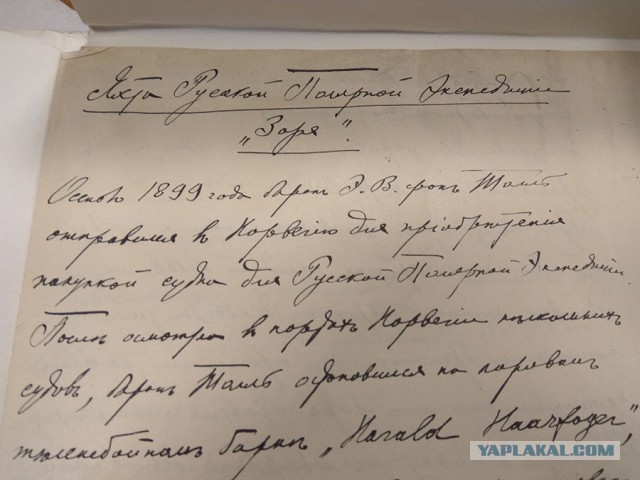 Яхта Русской Полярной Экспедиціи
„Заря".
Осенью 1899 года баронъ Э. В. фонъ Толль
отправился в Норвегію для пріобрѣтенія
покупкой судна для Русской Полярной Экспедиціи.
Послѣ осмотра в портахъ Норвегіи нѣсколькихъ
судовъ, баронъ Толль остановился на паровомъ
тюленебойномъ баркѣ „Harald Haarfager",
YAPLAKAL.COM